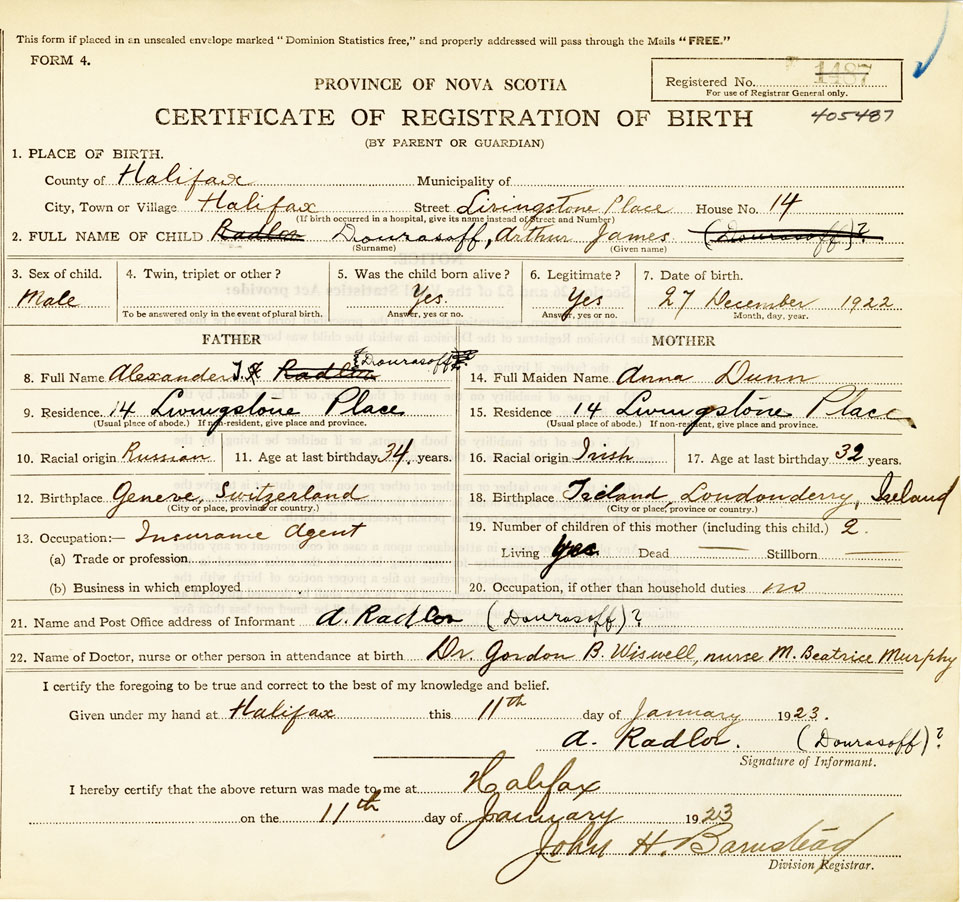 This form if placed in an unsealed envelope marked "Dominion Statistics free," and properly addressed will pass through the Mails "FREE."
FORM 4.
PROVINCE OF NOVA SCOTIA
Registered No. 1487
For use of Registrar General only.
CERTIFICATE OF REGISTRATION OF BIRTH 405487
(BY PARENT OR GUARDIAN)
1. PLACE OF BIRTH.
County of Halifax Municipality of
City, Town or Village Halifax Street Livingstone Place House No. 14
(If birth occurred in a hospital, give its name instead of Street and Number)
2. FULL NAME OF CHILD Radlor Dourasoff, Arthur James (Dourasoff)?
(Surname) (Given name)
3. Sex of child. 4. Twin, triplet or other? 5. Was the child born alive? 6. Legitimate? 7. Date of birth.
Male Yes. Yes 27 December 1922
To be answered only in the event of plural birth. Answer, yes or no. Answer, yes or no. Month, day, year.
FATHER MOTHER
8. Full Name Alexander Radlor Dourasoff 14. Full Maiden Name Anna Dunn
9. Residence. 14 Livingstone Place 15. Residence 14 Livingstone Place
(Usual place of abode.) If non-resident, give place and province. (Usual place of abode.) If non-resident, give place and province.
10. Racial origin Russian 11. Age at last birthday 34 years. 16. Racial origin Irish 17. Age at last birthday 32 years.
12. Birthplace Geneve, Switzerland 18. Birthplace Ireland, Londonderry, Ireland
(City or place, province or country.) (City or place, province or country.)
13. Occupation:— Insurance Agent 19. Number of children of this mother (including this child.) 2.
(a) Trade or profession Living yes Dead — Stillborn —
(b) Business in which employed 20. Occupation, if other than household duties no
21. Name and Post Office address of Informant A. Radlor (Dourasoff)?
22. Name of Doctor, nurse or other person in attendance at birth Dr. Gordon B. Wiswell, nurse M. Beatrice Murphy
I certify the foregoing to be true and correct to the best of my knowledge and belief.
Given under my hand at Halifax this 11th day of January 1923.
A. Radlor. (Dourasoff)?
Signature of Informant.
I hereby certify that the above return was made to me at Halifax
on the 11th day of January 1923
John H. Barnstead
Division Registrar.